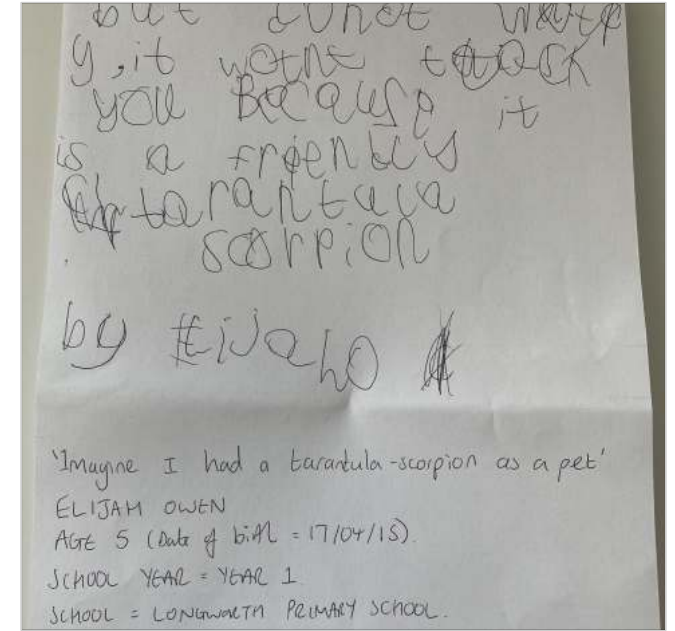 but donot worr
y, it wont tack
you Because it
is a friendly
tarantula
scorpion
by Elijah O
'Imagine I had a tarantula-scorpion as a pet'
ELIJAH OWEN
AGE 5 (Date of birth = 17/04/15).
SCHOOL YEAR = YEAR 1
SCHOOL = LONGWORTH PRIMARY SCHOOL.